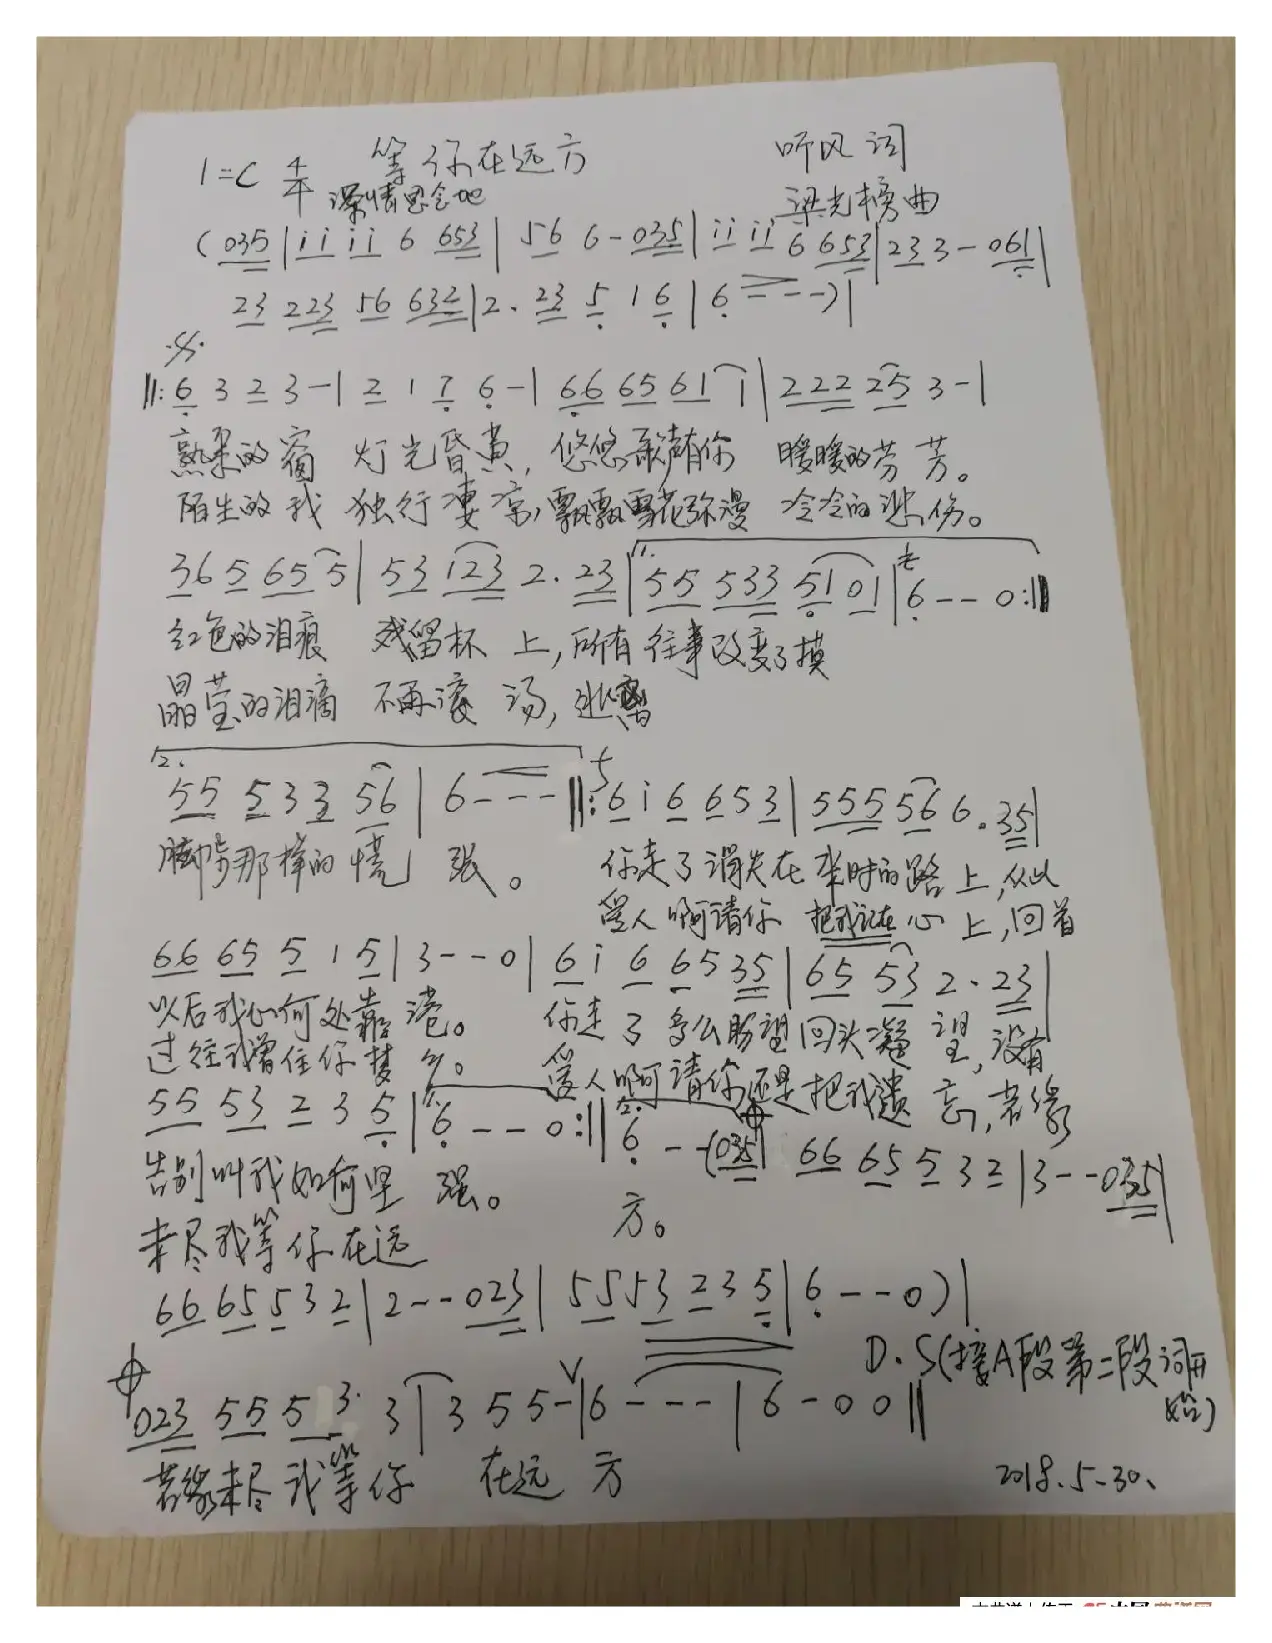 1=C 4/4 等你在远方 听风词
深情思念地 梁光榜曲
(035|i i i i 6 653|56 6-035|i i i i 6 653|23 3-061|
23 223 56 632|2·23 5 1 6|6---)|
||:6 3 2 3-|2 1 7 6-|66 65 61 1|222 25 3-|
熟柔的窗 灯光昏黄,悠悠歌声有你 暖暖的芬芳。
陌生的我 独行凄凉,飘飘雪花弥漫 冷冷的悲伤。
36 5 65 5|53 123 2·23|1.55 533 51 01|6--0:||
红色的泪痕 残留杯上,所有往事改变了摸
晶莹的泪滴 不再滚汤,
2.55 5 3 3 56|6---||:6 i 6 6 5 3|555 56 6·35|
脚步那样的慌 张。 你走了消失在来时的路上,从此
爱人啊请你 把我记在心上,回首
66 65 5 1 5|3--0|6 i 6 6 5 35|65 53 2·23|
以后我心何处靠港。 你走了多么盼望回头凝望,没有
过往我曾住你梦乡。 爱人啊请你还是把我遗忘,若缘
55 53 2 3 5|1.6--0:||2.6--(035|66 65 5 3 2|3--035|
告别叫我如何坚 强。 方。
未尽我等你在远
66 65 5 3 2|2--023|55 53 2 3 5|6--0)|
D.S(接A段第二段词开始)
023 55 5 3· 3|3 5 5-|6---|6-00||
若缘未尽我等你 在远 方
2018.5-30、